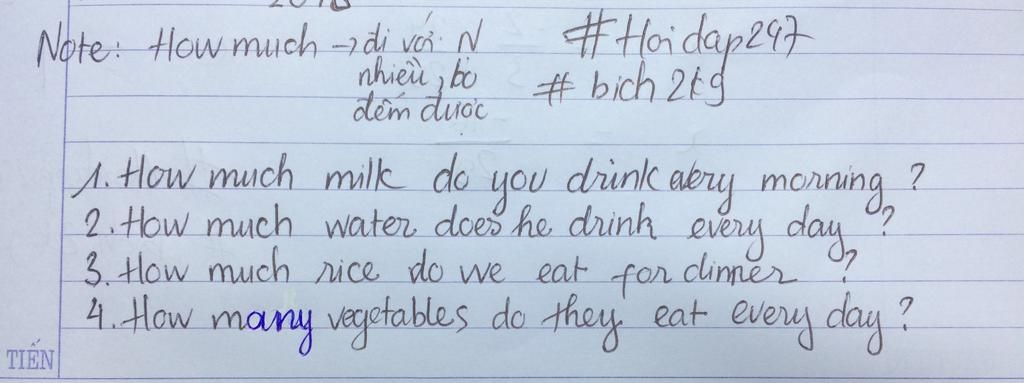 Note: How much → đi với N #Hoidap247
nhiều, ko # bich2k9
đếm được
1. How much milk do you drink every morning ?
2. How much water does he drink every day ?
3. How much rice do we eat for dinner ?
4. How many vegetables do they eat every day ?
TIẾN